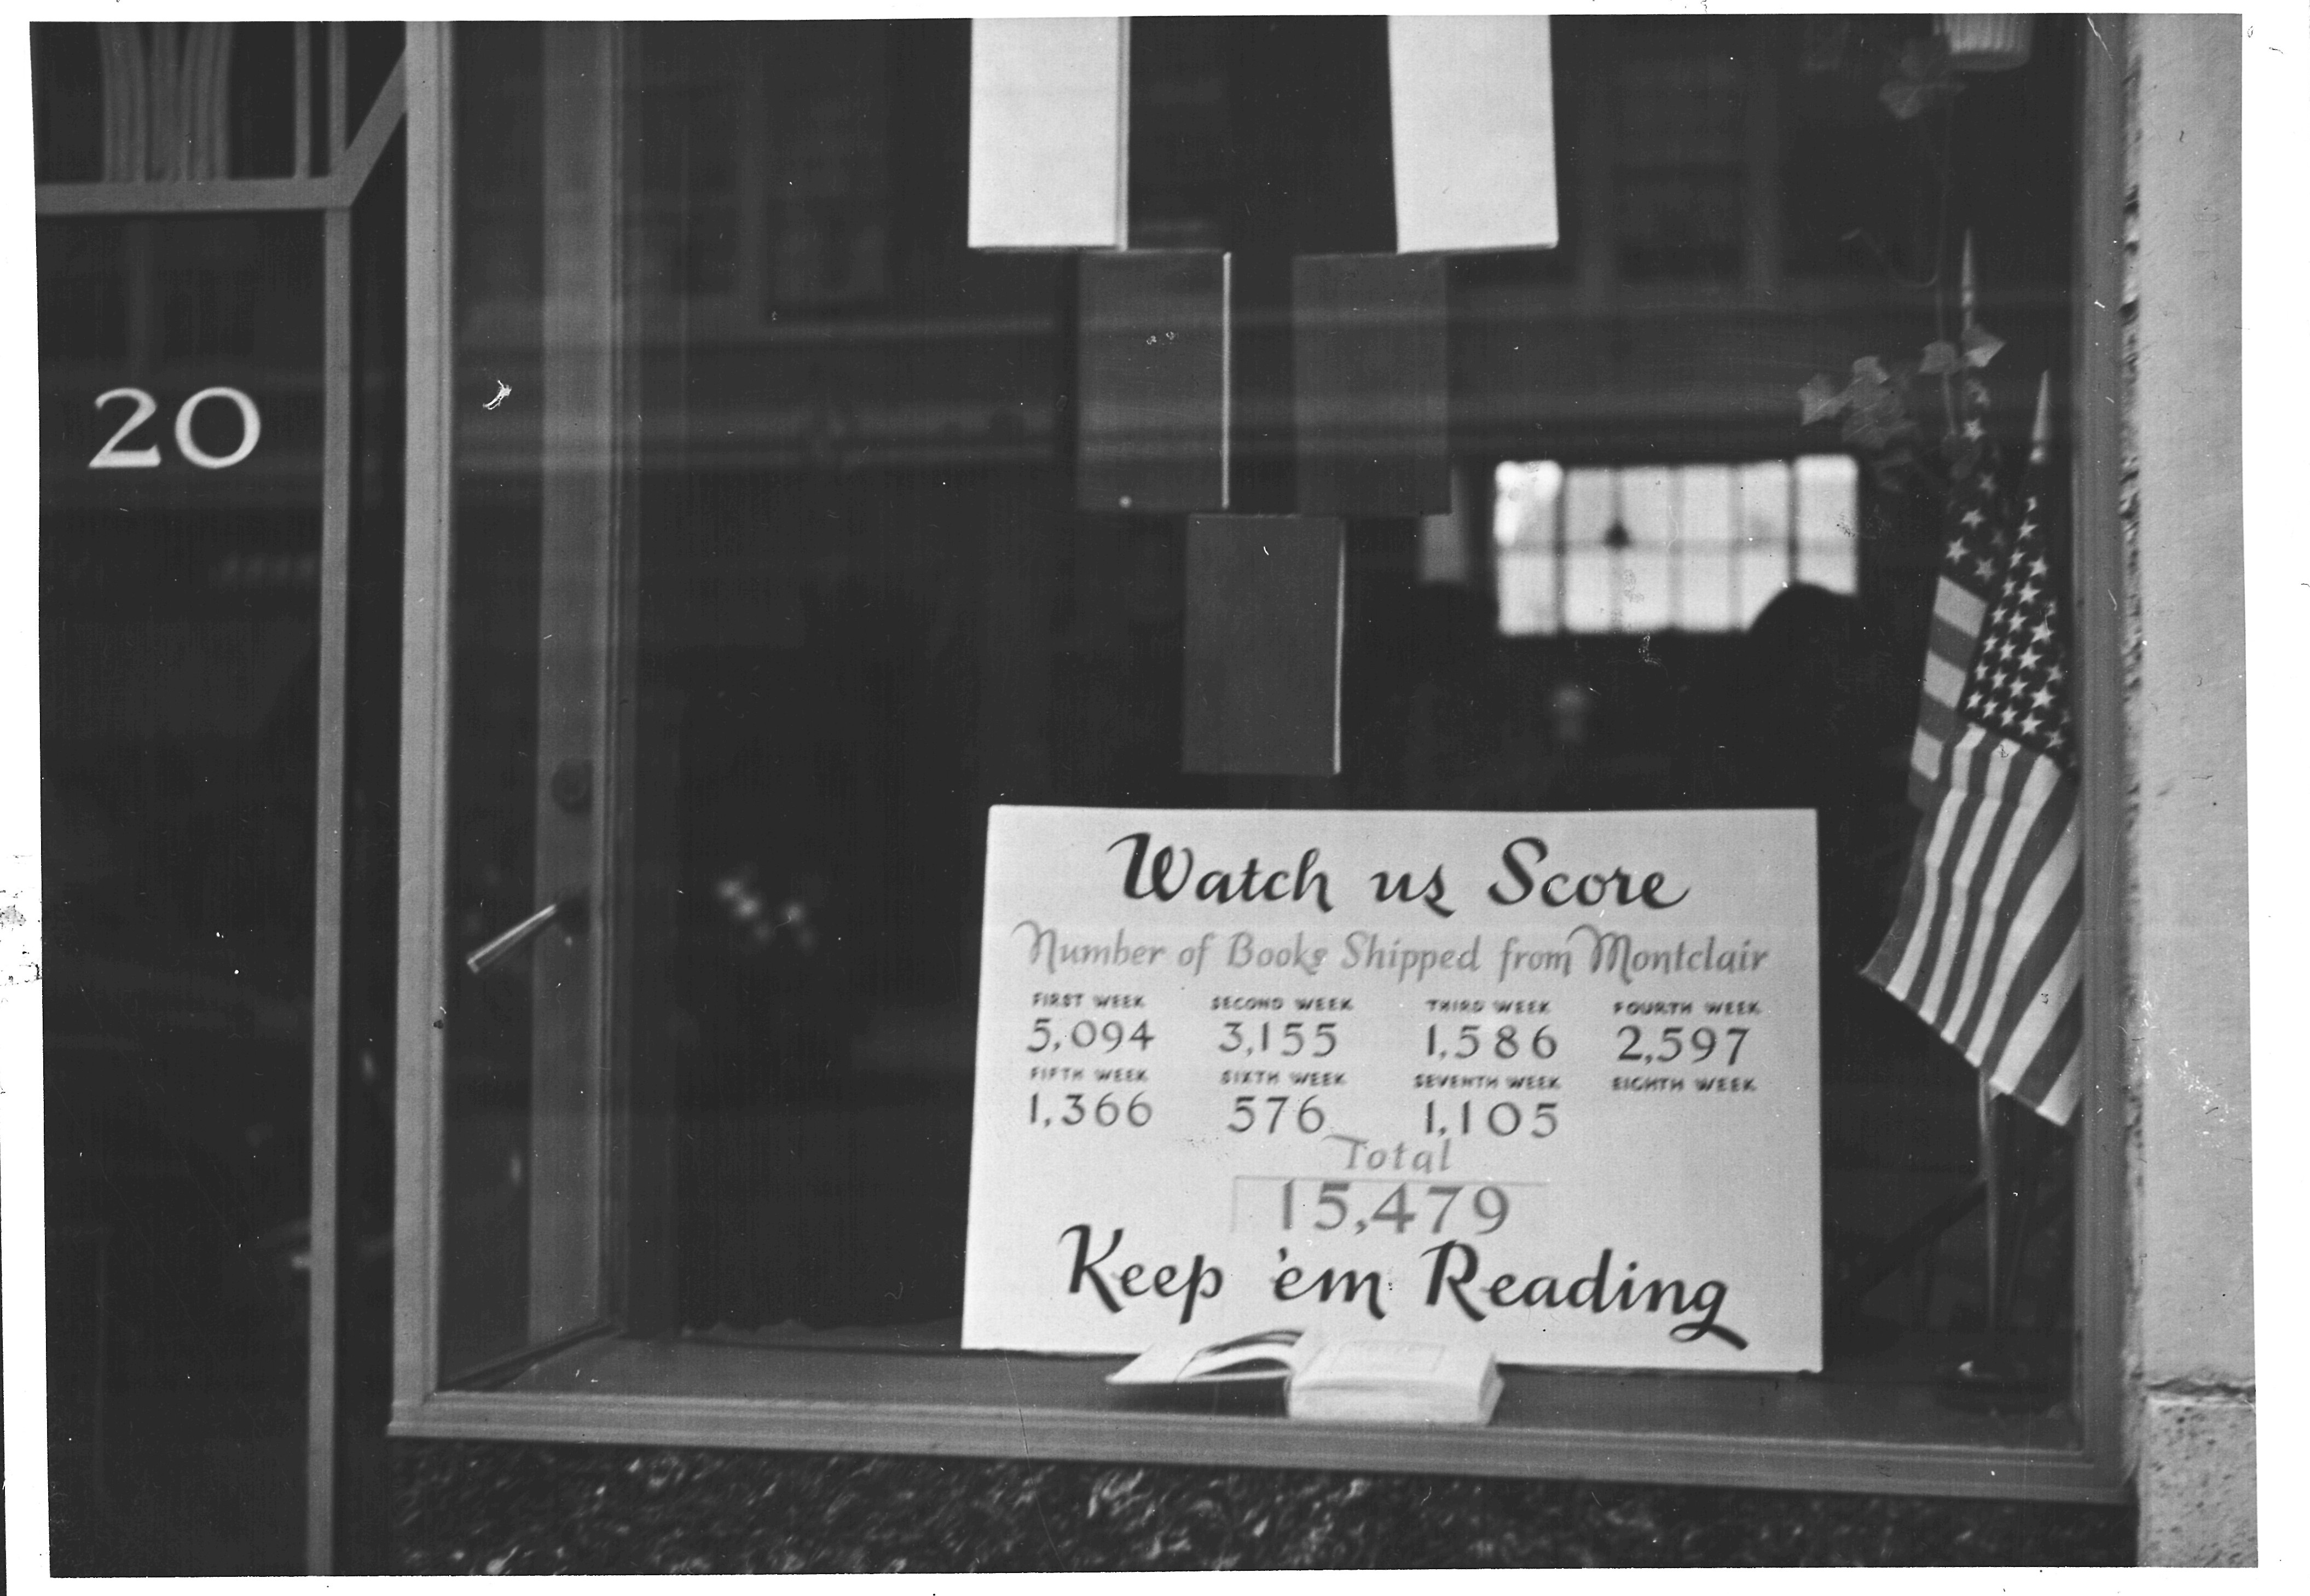 20
Watch us Score
Number of Books Shipped from Montclair
FIRST WEEK SECOND WEEK THIRD WEEK FOURTH WEEK
5,094 3,155 1,586 2,597
FIFTH WEEK SIXTH WEEK SEVENTH WEEK EIGHTH WEEK
1,366 576 1,105
Total
15,479
Keep 'em Reading